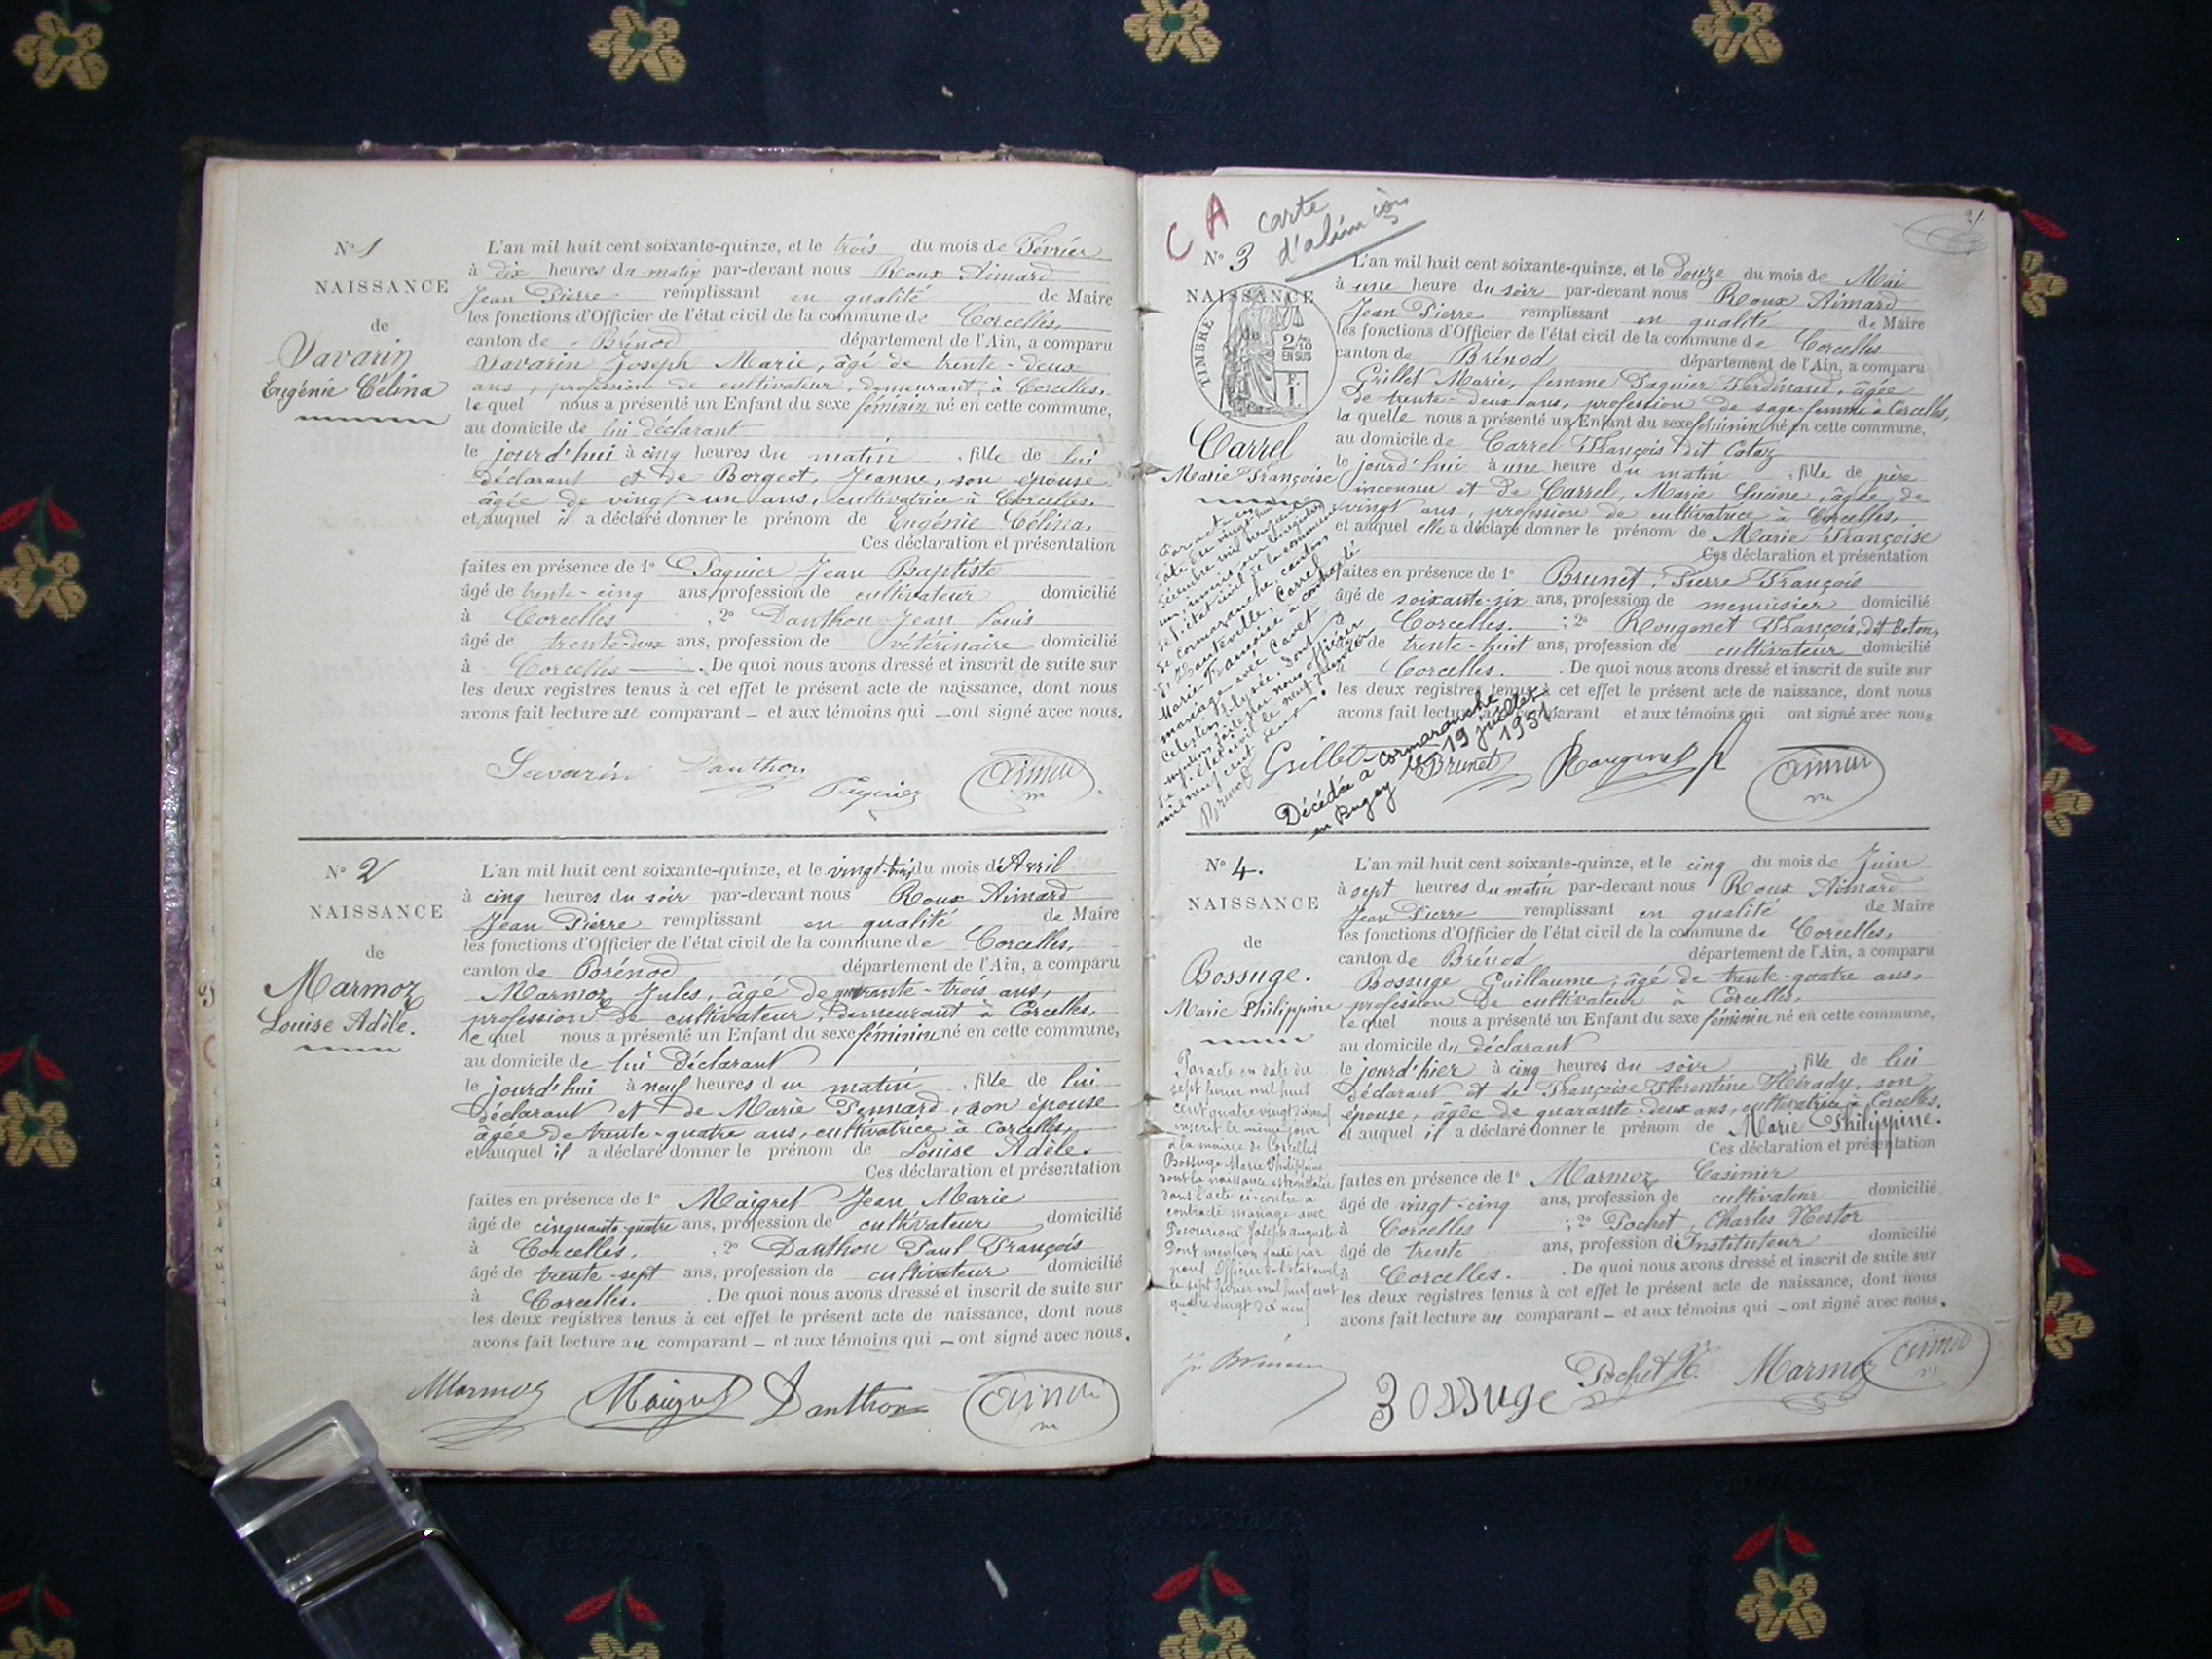 N° 1
NAISSANCE
de
Savarin
Eugénie Célina
L'an mil huit cent soixante-quinze, et le trois du mois de Février
à dix heures du matin par-devant nous Roux Aimard
Jean Pierre remplissant en qualité de Maire
les fonctions d'Officier de l'état civil de la commune de Corcelles,
canton de Brénod département de l'Ain, a comparu
Savarin Joseph Marie, âgé de trente-deux
ans, profession de cultivateur, demeurant à Corcelles,
le quel nous a présenté un Enfant du sexe féminin né en cette commune,
au domicile de lui déclarant
le jourd'hui à cinq heures du matin, fille de lui
déclarant et de Borgeot, Jeanne, son épouse
âgée de vingt-un ans, cultivatrice à Corcelles,
et auquel il a déclaré donner le prénom de Eugénie Célina.
Ces déclaration et présentation
faites en présence de 1° Paquier Jean Baptiste
âgé de trente-cinq ans, profession de cultivateur domicilié
à Corcelles, 2° Danthon Jean Louis
âgé de trente-deux ans, profession de vétérinaire domicilié
à Corcelles. De quoi nous avons dressé et inscrit de suite sur
les deux registres tenus à cet effet le présent acte de naissance, dont nous
avons fait lecture au comparant et aux témoins qui ont signé avec nous.
Savarin Danthon Paquier Aimard
N° 2
NAISSANCE
de
Marmoz
Louise Adèle.
L'an mil huit cent soixante-quinze, et le vingt-trois du mois d'Avril
à cinq heures du soir par-devant nous Roux Aimard
Jean Pierre remplissant en qualité de Maire
les fonctions d'Officier de l'état civil de la commune de Corcelles,
canton de Brénod département de l'Ain, a comparu
Marmoz Jules, âgé de quarante-trois ans,
profession de cultivateur, demeurant à Corcelles,
le quel nous a présenté un Enfant du sexe féminin né en cette commune,
au domicile de lui déclarant
le jourd'hui à neuf heures du matin, fille de lui
déclarant et de Marie Pennard, son épouse
âgée de trente-quatre ans, cultivatrice à Corcelles,
et auquel il a déclaré donner le prénom de Louise Adèle.
Ces déclaration et présentation
faites en présence de 1° Maigret Jean Marie
âgé de cinquante-quatre ans, profession de cultivateur domicilié
à Corcelles, 2° Danthon Paul François
âgé de trente-sept ans, profession de cultivateur domicilié
à Corcelles. De quoi nous avons dressé et inscrit de suite sur
les deux registres tenus à cet effet le présent acte de naissance, dont nous
avons fait lecture au comparant et aux témoins qui ont signé avec nous.
Marmoz Maigret Danthon Aimard
C A carte
d'alim ion
31.
N° 3
NAISSANCE
de
TIMBRE
2/10
EN SUS
Carrel
Marie Françoise
Par acte en
date du vingt-huit
décembre mil neuf cent
un, inscrit sur les registres
de l'état civil de la commune
de Cormaranche, canton
d'Hauteville, Carrel
Marie Françoise a contracté
mariage avec Cavet
Célestin Elysée. Dont
mention faite par nous officier
de l'état civil le neuf janvier
mil neuf cent deux.
Décédée à Cormaranche
en Bugey le 19 juillet
1951
L'an mil huit cent soixante-quinze, et le douze du mois de Mai
à une heure du soir par-devant nous Roux Aimard
Jean Pierre remplissant en qualité de Maire
les fonctions d'Officier de l'état civil de la commune de Corcelles
canton de Brénod département de l'Ain, a comparu
Grillet Marie, femme Paquier Ferdinand, âgée
de trente-deux ans, profession de sage-femme à Corcelles,
la quelle nous a présenté un Enfant du sexe féminin né en cette commune,
au domicile de Carrel François dit Cotaz
le jourd'hui à une heure du matin, fille de père
inconnu et de Carrel, Marie Lucine, âgée de
vingt ans, profession de cultivatrice à Corcelles,
et auquel elle a déclaré donner le prénom de Marie Françoise
Ces déclaration et présentation
faites en présence de 1° Brunet, Pierre François
âgé de soixante-six ans, profession de menuisier domicilié
Corcelles. ; 2° Rougemet François, dit Boton,
âgé de trente-huit ans, profession de cultivateur domicilié
à Corcelles. De quoi nous avons dressé et inscrit de suite sur
les deux registres tenus à cet effet le présent acte de naissance, dont nous
avons fait lecture comparant et aux témoins qui ont signé avec nous
Grillet Brunet Rougemet Aimard
N° 4.
NAISSANCE
de
Bossuge.
Marie Philippine
Par acte en date du
sept février mil huit
cent quatre vingt dix neuf
inscrit le même jour
à la mairie de Corcelles
Bossuge Marie Philippine
dont la naissance est constatée
dans l'acte ci-contre a
contracté mariage avec
Joseph Auguste
Dont mention faite par
nous Officier de l'état civil
le sept février mil huit cent
quatre vingt dix neuf
L'an mil huit cent soixante-quinze, et le cinq du mois de Juin
à sept heures du matin par-devant nous Roux Aimard
Jean Pierre remplissant en qualité de Maire
les fonctions d'Officier de l'état civil de la commune de Corcelles,
canton de Brénod département de l'Ain, a comparu
Bossuge Guillaume, âgé de trente-quatre ans,
profession de cultivateur à Corcelles,
le quel nous a présenté un Enfant du sexe féminin né en cette commune,
au domicile du déclarant
le jourd'hier à cinq heures du soir, fille de lui
déclarant et de Françoise Florentine Hérady, son
épouse, âgée de quarante-deux ans, cultivatrice à Corcelles.
et auquel il a déclaré donner le prénom de Marie Philippine.
Ces déclaration et présentation
faites en présence de 1° Marmoz, Casimir
âgé de vingt-cinq ans, profession de cultivateur domicilié
à Corcelles ; 2° Pochet, Charles Nestor
âgé de trente ans, profession d'Instituteur domicilié
à Corcelles. De quoi nous avons dressé et inscrit de suite sur
les deux registres tenus à cet effet le présent acte de naissance, dont nous
avons fait lecture au comparant et aux témoins qui ont signé avec nous.
Bossuge Pochet N. Marmoz Aimard